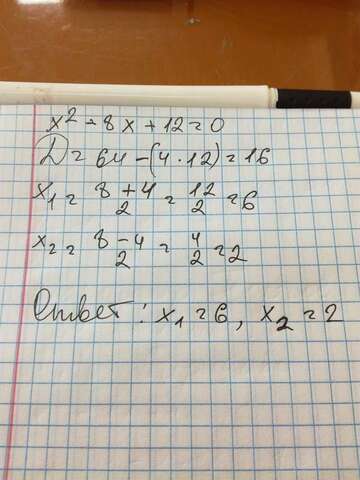 x² - 8x + 12 = 0
D = 64 - (4 · 12) = 16
x₁ = 8 + 4 / 2 = 12 / 2 = 6
x₂ = 8 - 4 / 2 = 4 / 2 = 2
Ответ: x₁ = 6, x₂ = 2